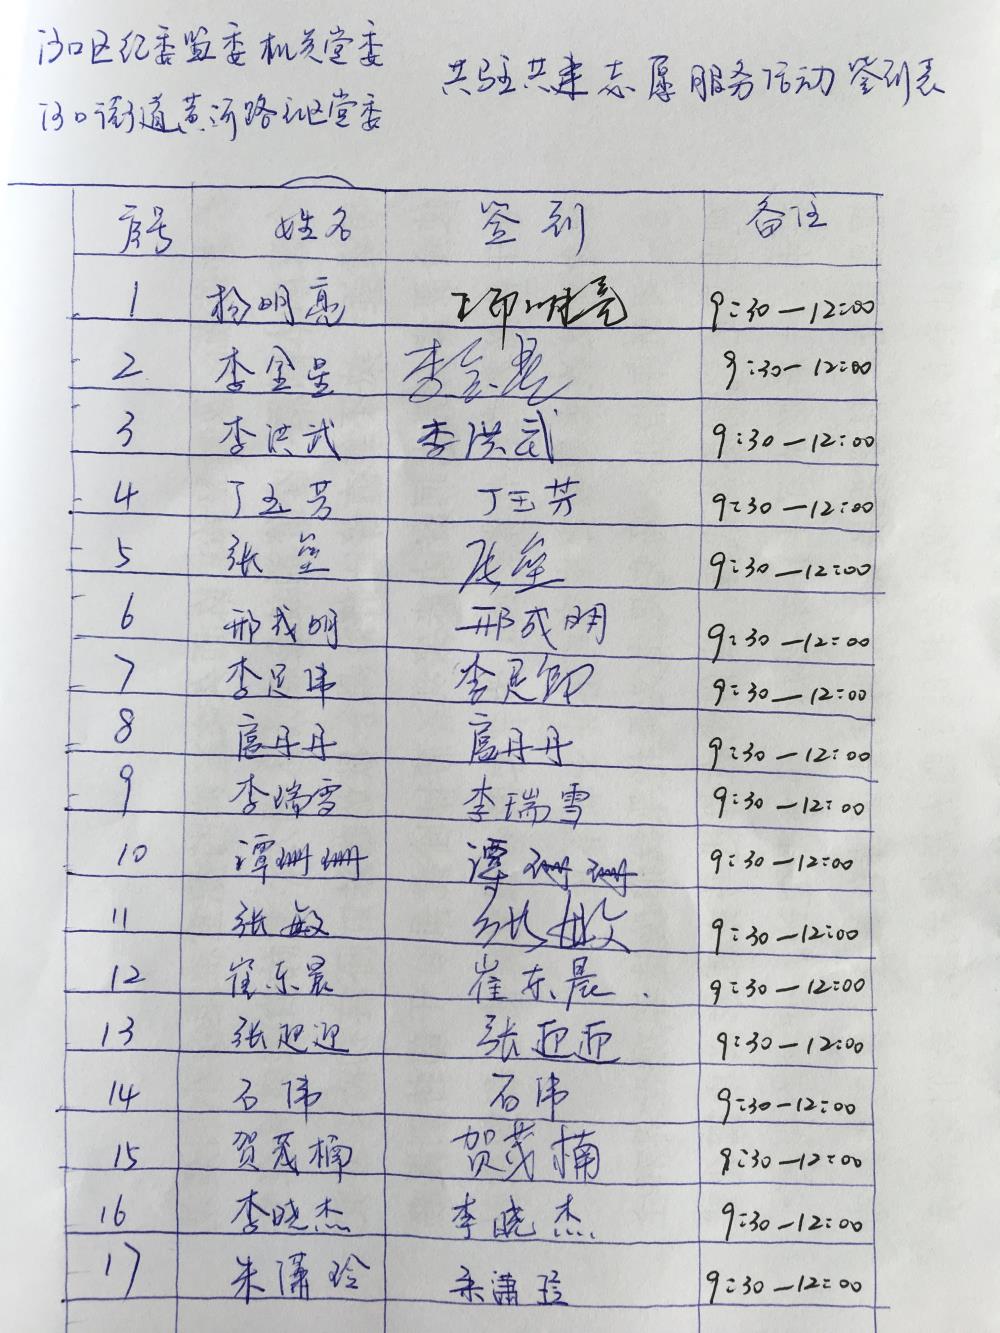 泊口区纪委监委机关党委
泊口街道黄河路社区党委
共驻共建志愿服务活动签到表
序号 姓名 签到 备注
1 杨明亮 9:30—12:00
2 李金星 李金星 9:30—12:00
3 李洪武 李洪武 9:30—12:00
4 丁玉芳 丁玉芳 9:30—12:00
5 张垒 张垒 9:30—12:00
6 邢成明 邢成明 9:30—12:00
7 李 9:30—12:00
8 扈丹丹 扈丹丹 9:30—12:00
9 李瑞雪 李瑞雪 9:30—12:00
10 谭珊珊 谭珊珊 9:30—12:00
11 张敏 张敏 9:30—12:00
12 崔东晨 崔东晨 9:30—12:00
13 张迎迎 张迎迎 9:30—12:00
14 石伟 石伟 9:30—12:00
15 贺茂楠 贺茂楠 9:30—12:00
16 李晓杰 李晓杰 9:30—12:00
17 朱潇玲 朱潇玲 9:30—12:00